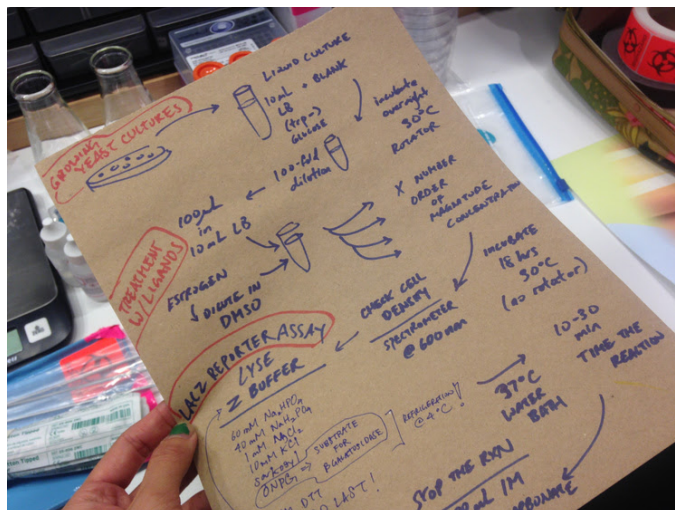 GROWING
YEAST CULTURES
LIQUID CULTURE
10mL + BLANK
LB
(trp-)
GLUCOSE
incubate
overnight
30°C
ROTATOR
100-fold
dilution
100µL
in
10mL LB
ESTROGEN
DILUTE IN
DMSO
X NUMBER
ORDER
OF
MAGNITUDE
CONCENTRATION
TREATMENT
W/ LIGANDS
INCUBATE
18 hrs
30°C
(no rotator)
CHECK CELL
DENSITY
SPECTROMETER
@ 600nm
LACZ REPORTER ASSAY
LYSE
Z BUFFER
60mM Na2HPO4
40mM NaH2PO4
1mM MgCl2
10mM KCl
sarkosyl
ONPG
SUBSTRATE
FOR
BGALACTOSIDASE
REFRIGERATION!
@ 4°C!
DTT
LAST!
37°C
WATER
BATH
10-30
min
TIME THE
REACTION
STOP THE RXN
1M